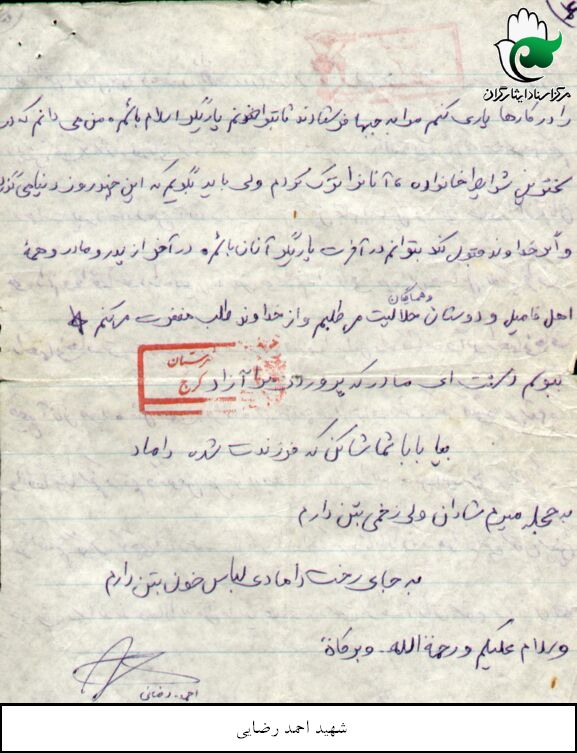 مرکز اسناد ایثارگران
را در کارها یاری کنم مرا به جبهه فرستادند تا بتوانم یاریگر اسلام باشم. من می دانم که در
سختترین شرایط خانواده، آنان را ترک کردم ولی باید بگویم که این چند روز دنیا می گذرد
و اگر خداوند قبول کند بتوانم در آخرت یاریگر آنان باشم. در آخر از پدر و مادر و همه
اهل فامیل و دوستان و همسایگان حلالیت می طلبم و از خداوند طلب مغفرت می کنم
ببوسم دستت ای مادر که پروردی مرا آزاد
کرج
بیا بابا تماشا کن که فرزندت شده داماد
به حجله میرم شادان ولی زخمی بتن دارم
به جای رخت دامادی لباس خون بتن دارم
والسلام علیکم و رحمة الله و برکاتة
احمد رضائی
شهید احمد رضایی